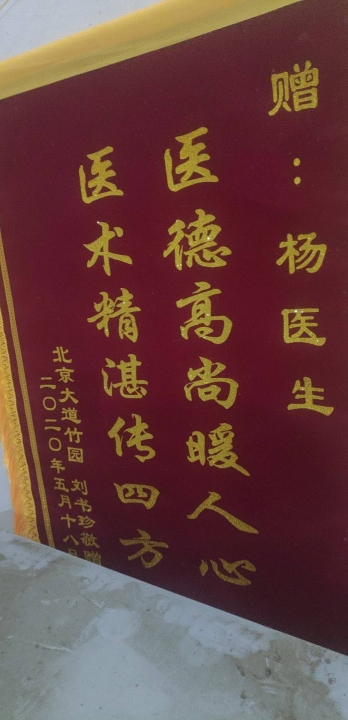 赠：杨医生
医德高尚暖人心
医术精湛传四方
北京大道竹园 刘书珍敬赠
二〇二〇年五月十八日